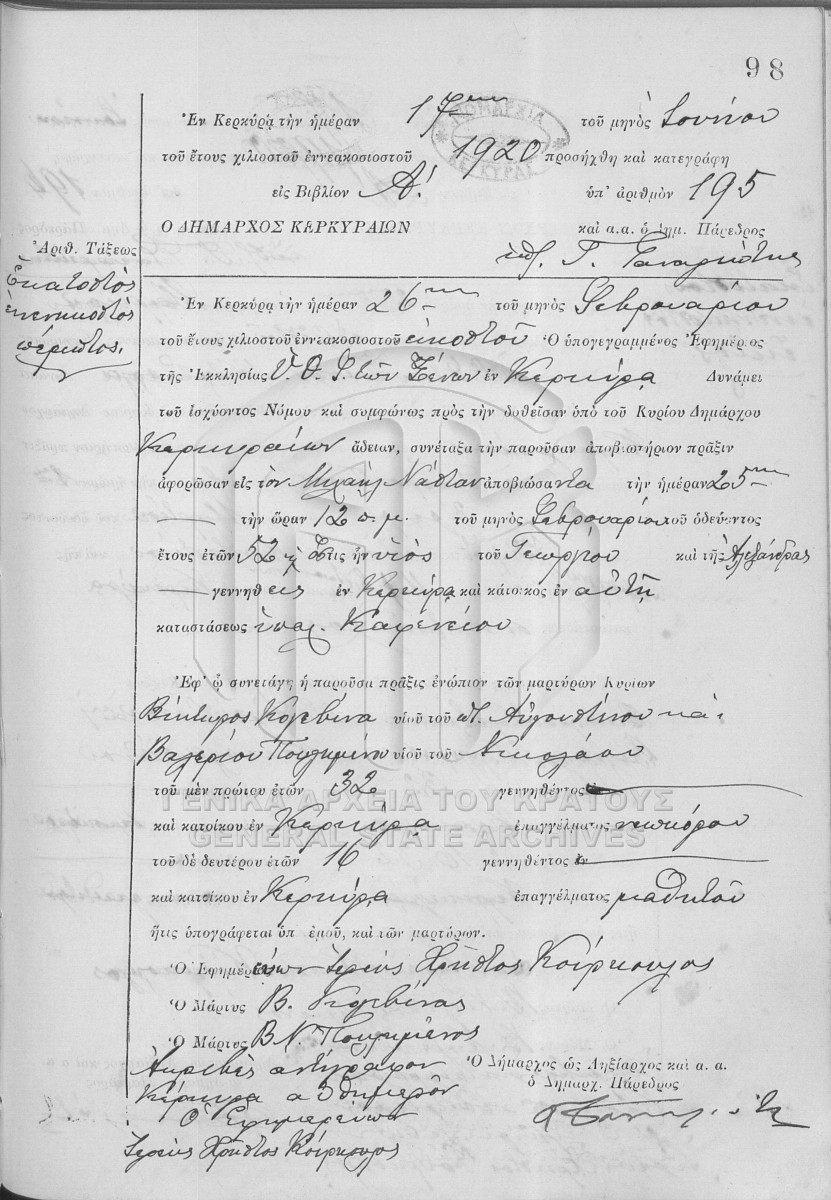 98
Ἐν Κερκύρᾳ τὴν ἡμέραν 17ην τοῦ μηνὸς Ἰουνίου
τοῦ ἔτους χιλιοστοῦ ἐννεακοσιοστοῦ 1920 προσήχθη καὶ κατεγράφη
εἰς Βιβλίον Α΄. ὑπ' ἀριθμὸν 195
Ο ΔΗΜΑΡΧΟΣ ΚΕΡΚΥΡΑΙΩΝ καὶ α.α. ὁ Δημ. Πάρεδρος
Ἀριθ. Τάξεως
Ἑκατοστὸς
ἐνενηκοστὸς
πέμπτος.
Ἐν Κερκύρᾳ τὴν ἡμέραν 26ην τοῦ μηνὸς Φεβρουαρίου
τοῦ ἔτους χιλιοστοῦ ἐννεακοσιοστοῦ εἰκοστοῦ Ὁ ὑπογεγραμμένος Ἐφημέριος
τῆς Ἐκκλησίας Ὑ. Θ. τῶν Ξένων ἐν Κερκύρᾳ Δυνάμει
τοῦ ἰσχύοντος Νόμου καὶ συμφώνως πρὸς τὴν δοθεῖσαν ὑπὸ τοῦ Κυρίου Δημάρχου
Κερκυραίων ἄδειαν, συνέταξα τὴν παροῦσαν ἀποβιωτήριον πρᾶξιν
ἀφορῶσαν εἰς τὸν Μιχαὴλ ἀποβιώσαντα τὴν ἡμέραν 25ην
τὴν ὥραν 12 π.μ. τοῦ μηνὸς Φεβρουαρίου τοῦ ὁδεύοντος
ἔτους ἐτῶν 52 ὅστις ἦν υἱὸς τοῦ Γεωργίου καὶ τῆς Ἀλεξάνδρας
γεννηθεὶς ἐν Κερκύρᾳ καὶ κάτοικος ἐν αὐτῇ
καταστάσεως ὑπαλ. Καφενείου
Ἐφ' ᾧ συνετάγη ἡ παροῦσα πρᾶξις ἐνώπιον τῶν μαρτύρων Κυρίων
Βίκτωρος Κολεβίνα υἱοῦ τοῦ ποτ. Αὐγουστίνου καὶ
Βαλερίου υἱοῦ τοῦ Νικολάου
τοῦ μὲν πρώτου ἐτῶν 32 γεννηθέντος
ΓΕΝΙΚΑ ΑΡΧΕΙΑ ΤΟΥ ΚΡΑΤΟΥΣ
καὶ κατοίκου ἐν Κερκύρᾳ ἐπαγγέλματος νεωκόρου
GENERAL STATE ARCHIVES
τοῦ δὲ δευτέρου ἐτῶν 16 γεννηθέντος ἐν
καὶ κατοίκου ἐν Κερκύρᾳ ἐπαγγέλματος μαθητοῦ
ἥτις ὑπογράφεται ὑπ' ἐμοῦ, καὶ τῶν μαρτύρων.
Ὁ Ἐφημερεύων Ἱερεὺς Χρῆστος Κούρκουλος
Ὁ Μάρτυς Β. Κολεβίνας
Ὁ Μάρτυς Β. Ν.
Ἀκριβὲς ἀντίγραφον
Κέρκυρα αὐθημερὸν
Ὁ Ἐφημερεύων
Ἱερεὺς Χρῆστος Κούρκουλος
Ὁ Δήμαρχος ὡς Ληξίαρχος καὶ α. α.
ὁ Δημαρχ. Πάρεδρος